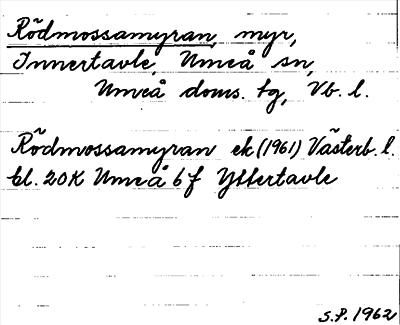 Rödmossamyran, myr,
Innertavle, Umeå sn,
Umeå doms. tg, Vb. l.
Rödmossamyran ek (1961) Västerb. l.
bl. 20K Umeå 6f Yttertavle
S.P. 1962